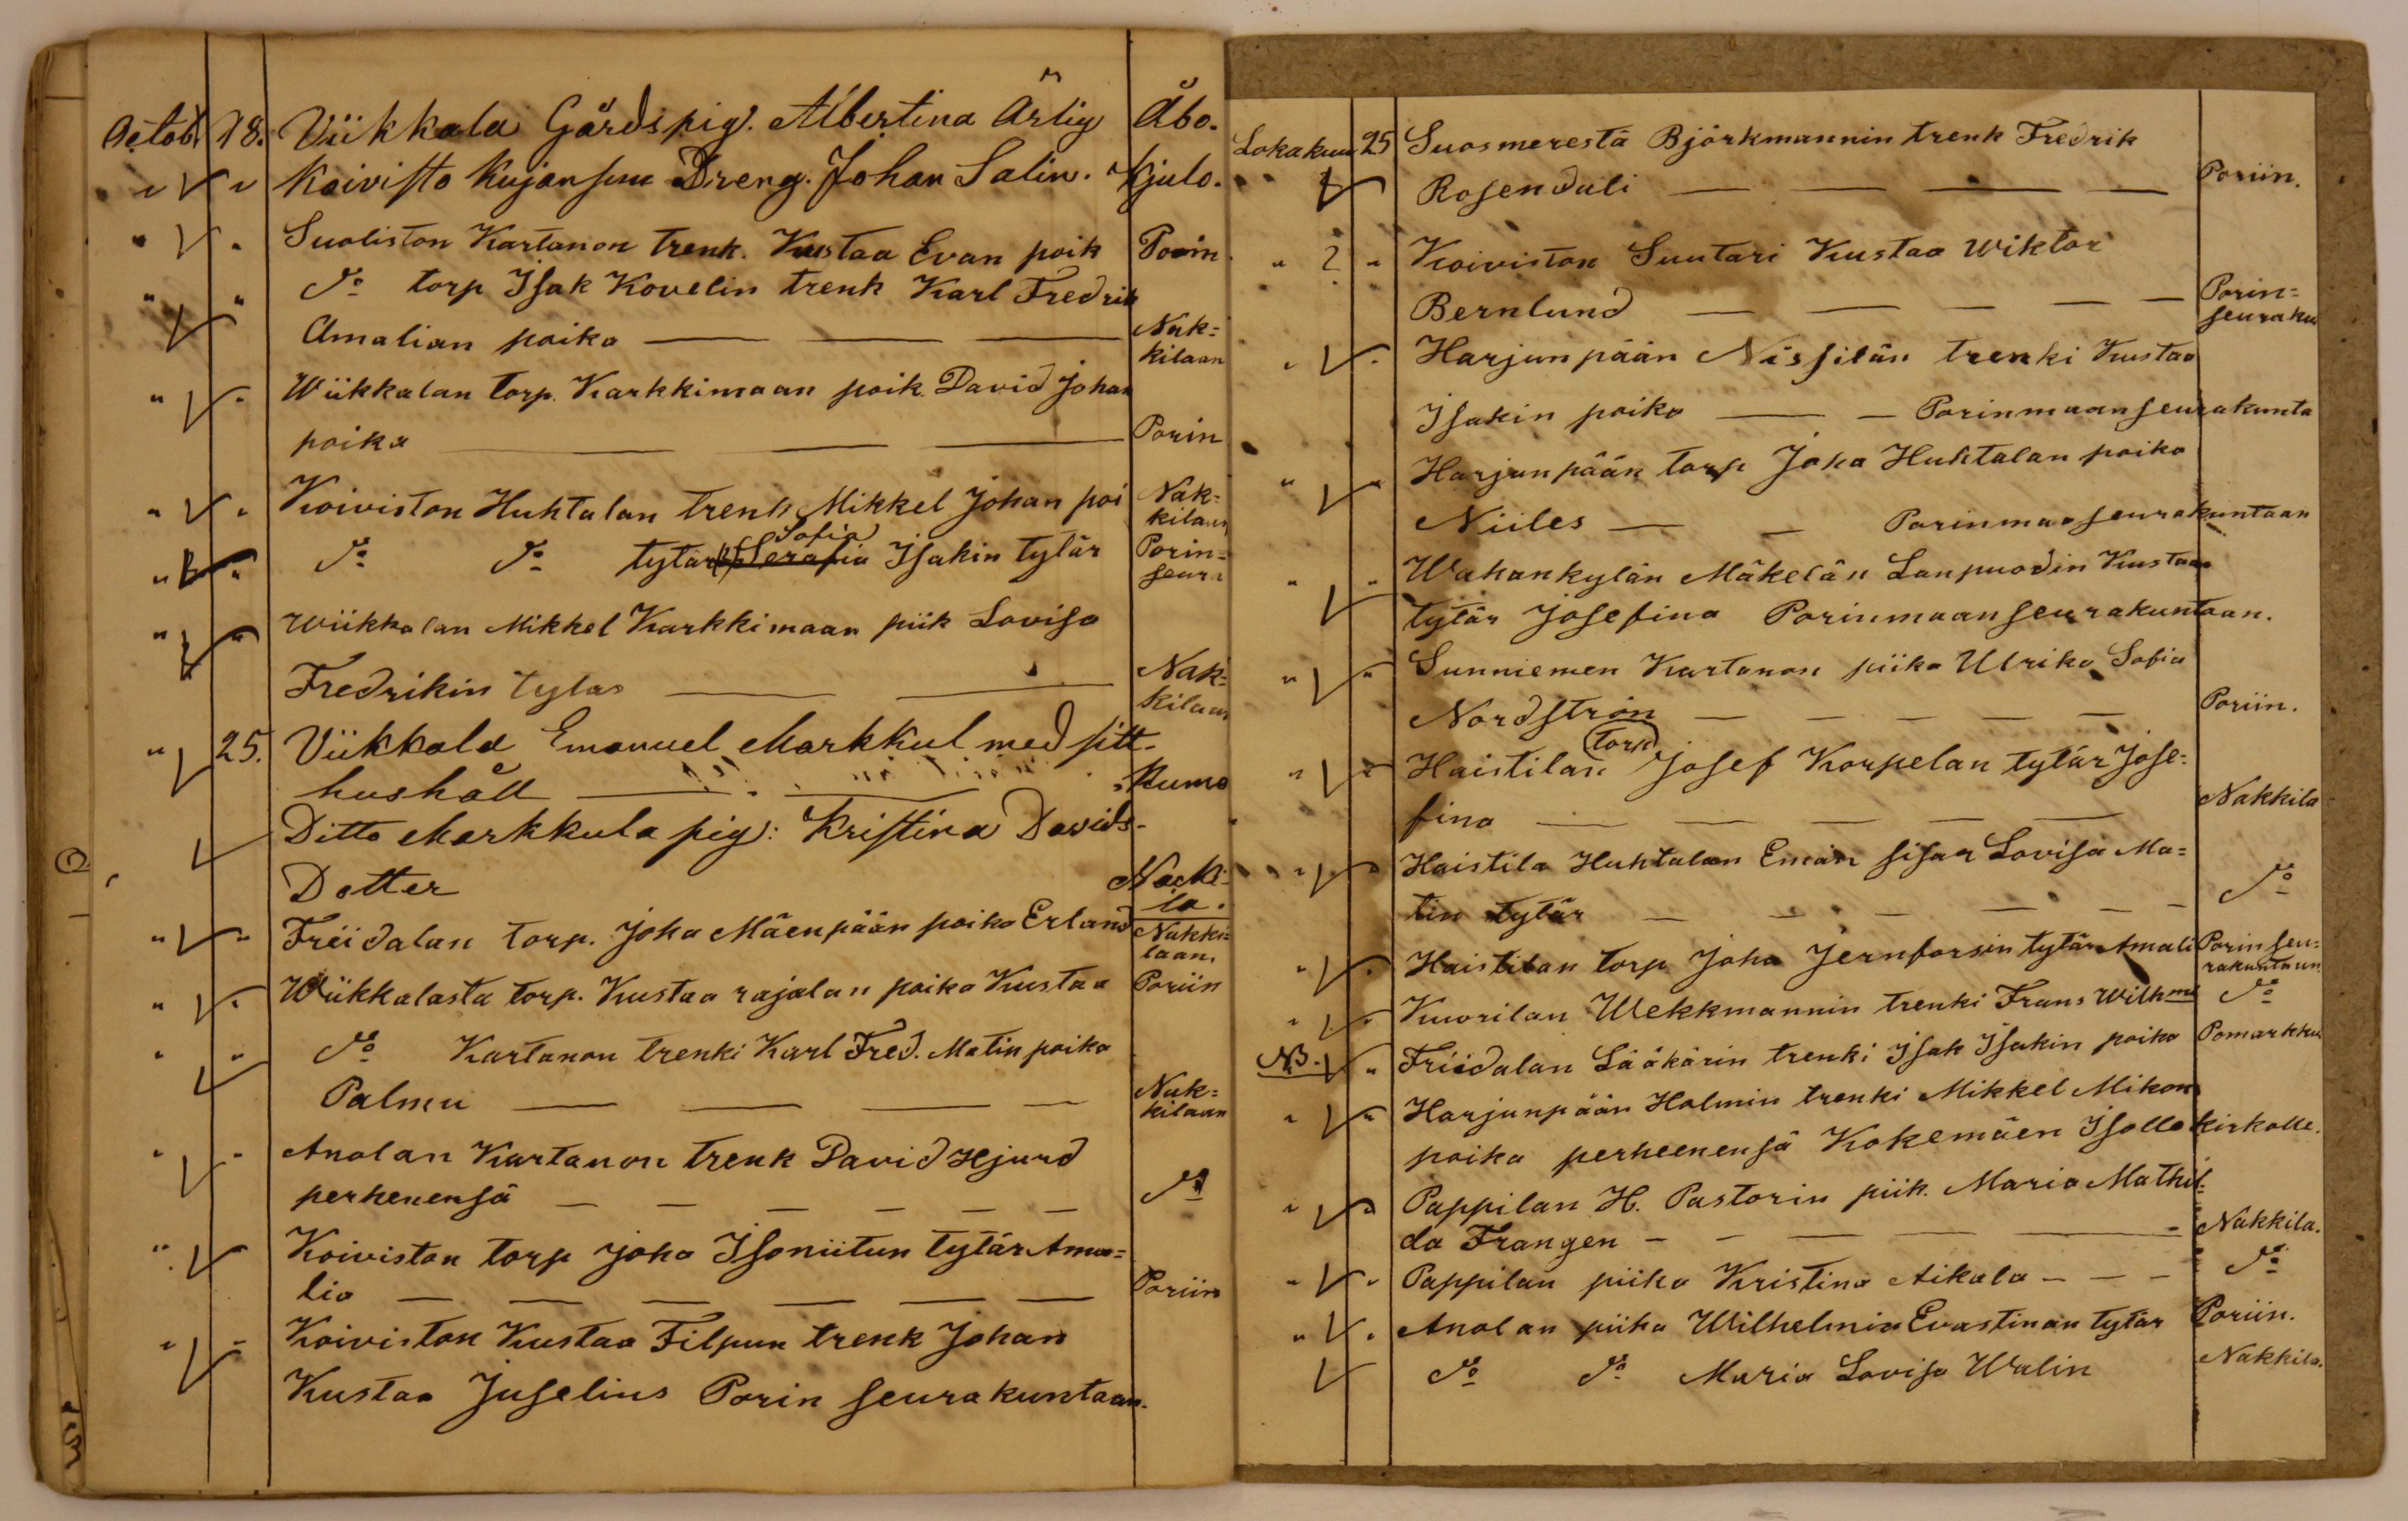 Octob. 18. Viikkala Gårdspig. Albertina Ärlig Åbo.
" " Koivisto Kujansuu Dreng. Johan Salin. Kjulo.
" " Suoliston Kartanon trenk. Kustaa Evan poik Porin
" " Do torp Isak Kovelin trenk Karl Fredrik
Amalian poika — — — Nak=
kilaan
" " Wiikkalan torp. Karkkimaan poik. David Johan
poika — — — Porin
" " Koiviston Huhtalan trenk Mikkel Johan poi Nak=
kilaan
Sofia
" " Do Do tytär Serafia Isakin tytär Porin=
seura
" " Wiikkalan Mikkel Karkkimaan piik Lovisa
Fredrikin tytar — — Nak=
kilaan
" 25. Viikkala Emanuel Markkul med sitt
hushåll — — Kumo
Ditto Markkula pig: Kristina Davids-
Dotter Nacki-
la.
" " Friidalan torp. Joha Mäenpään poika Erland Nakki=
laan.
" " Wiikkalasta torp. Kustaa rajalan poika Kustaa Poriin
" " Do Kartanon trenki Karl Fred. Matin poika
Palmu — — — — Nak=
kilaan
" " Anolan Kartanon trenk David Hjurd
perhenensä — — — — — — Do
" Koiviston torp Joha Isoniitun tytär Ama=
lia — — — — — — Poriin
" " Koiviston Kustaa Filpun trenk Johan
Kustaa Juselius Porin seurakuntaan.
Lokakuu 25 Suosmerestä Björkmannin trenk Fredrik
Rosendali — — — — Poriin.
" ? " Koiviston Suutari Kustaa Wiktor
Bernlund — — — — — Porin=
seuraku
" " Harjunpään Nissilän trenki Kustaa
Isakin poika — — Porinmaanseurakunta
" " Harjunpään torp Joha Huhtalan poika
Niiles — — Porinmaaseurakuntaan
" " Wahankylän Mäkelän Lanpuodin Kustaan
tytär Josefina Porinmaanseurakuntaan.
" " Sunniemen Kartanon piika Ulrika Sofia
Nordström — — — — — Poriin.
torp
" " Haistilan Josef Korpelan tytär Jose=
fina — — — — — Nakkila
" " Haistila Huhtalan Emän sisar Lovisa Ma=
tin tytär — — — — — — Do
" " Haistilan torp Joha Jernforsin tytär Amali Porinseu=
rakuntaan
" " Kuvrilan Wekkmannin trenki Frans Wilhme Do
NB. " Friidalan Lääkärin trenki Isak Isakin poika Pomarkku
" " Harjunpään Holmin trenki Mikkel Mikon
poika perheenensä Kokemäen Isolle kirkolle.
" " Pappilan H. Pastorin piik. Maria Mathil=
da Frangen — — — — — Nakkila.
" " Pappilan piika Kristina Aikala — — — Do
" " Anolan piika Wilhelmia Evastinan tytär Poriin.
Do Do Maria Lovisa Walin Nakkila.